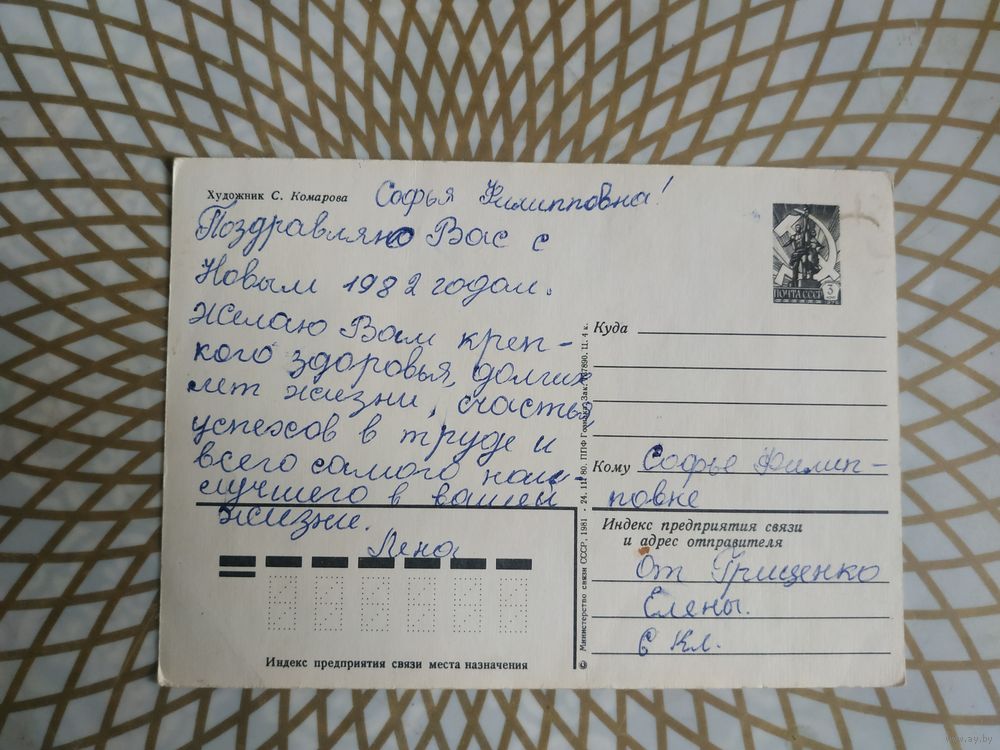 Художник С. Комарова
Софья Филипповна!
Поздравляю Вас с
Новым 1982 годом.
Желаю Вам креп-
кого здоровья, долгих
лет жизни, счастья,
успехов в труде и
всего самого наи-
лучшего в вашей
жизни.
Лена
Индекс предприятия связи места назначения
© Министерство связи СССР, 1981 - 24. 11. 80. ППФ Гознака. Зак. 7890. Ц. 4 к.
ПОЧТА СССР
3
Куда
Кому Софье Филип-
повне
Индекс предприятия связи
и адрес отправителя
От Грищенко
Елены.
6 кл.
www.ay.by